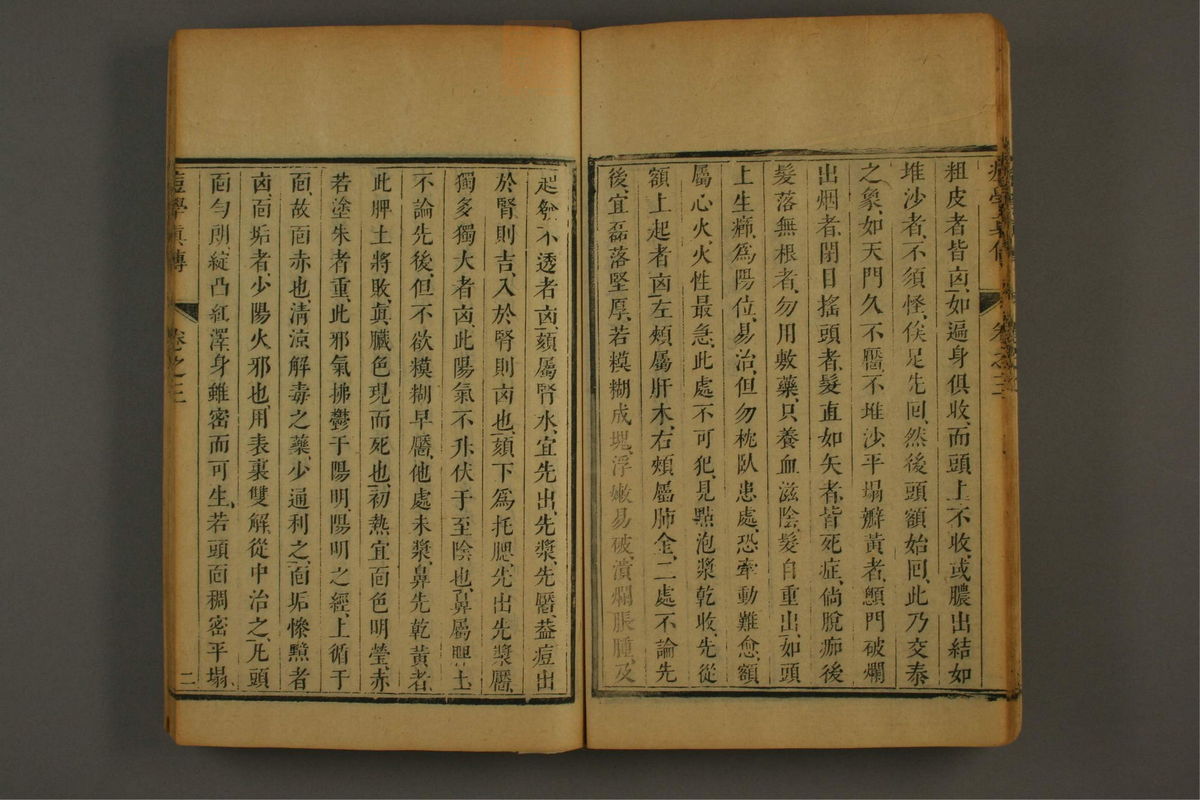 痘學真傳 卷之三
粗皮者皆凶、如遍身俱收、而頭上不收、或膿出結如
堆沙者、不須怪、俟足先回、然後頭額始回、此乃交泰
之象、如天門久不靨、不堆沙、平塌瓣黃者、顖門破爛
出烟者、閉目搖頭者、髮直如矢者、皆死症、倘脫痂後
髮落無根者、勿用敷藥、只養血滋陰、髮自重出、如頭
上生癤、爲陽位、易治、但勿枕臥患處、恐牽動難愈、額
屬心火、火性最急、此處不可犯、見點泡漿乾收、先從
額上起者凶、左頰屬肝木、右頰屬肺金、二處不論先
後、宜磊落堅厚、若糢糊成塊、浮嫩易破、潰爛脹腫、及
起發不透者凶、頦屬腎水、宜先出、先漿、先靨、葢痘出
於腎則吉、入於腎則凶也、頦下爲托腮、先出先漿靨、
獨多獨大者凶、此陽氣不升、伏于至陰也、鼻屬脾土、
不論先後、但不欲糢糊早靨、他處未漿、鼻先乾黃者、
此脾土將敗、眞臟色現而死也、初熱宜面色明瑩、赤
若塗朱者重、此邪氣拂鬱于陽明、陽明之經、上循于
面、故面赤也、清涼解毒之藥、少通利之、面垢慘黯者
凶、面垢者、少陽火邪也、用表裏雙解、從中治之、凡頭
面勻朗綻凸紅澤、身雖密而可生、若頭面稠密平塌、
痘學眞傳 卷之三 二